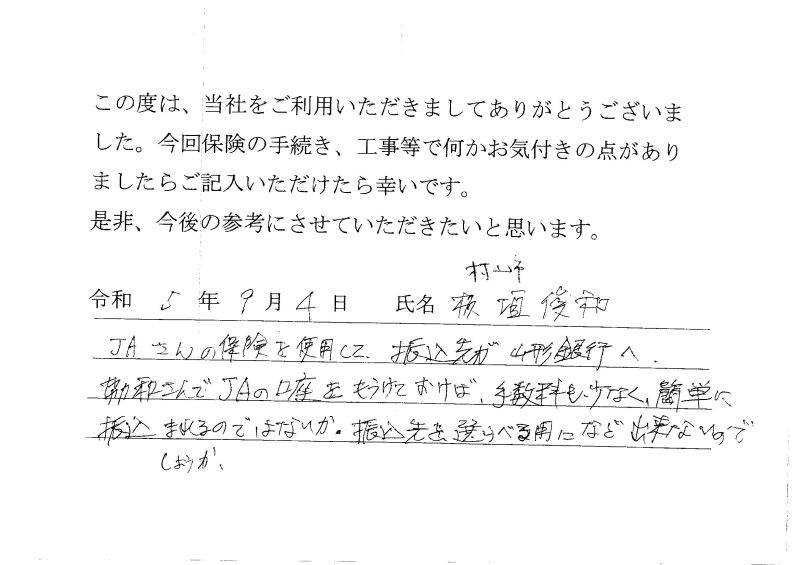 この度は、当社をご利用いただきましてありがとうございま
した。今回保険の手続き、工事等で何かお気付きの点があり
ましたらご記入いただけたら幸いです。
是非、今後の参考にさせていただきたいと思います。
村山市
令和 5 年 9 月 4 日 氏名 板垣俊和
JAさんの保険を使用して、振込先が山形銀行へ.
和さんでJAの口座をもうけておけば、手数料も少なく、簡単に
振込まれるのではないか。振込先を選らべる用になど出来ないので
しょうか、